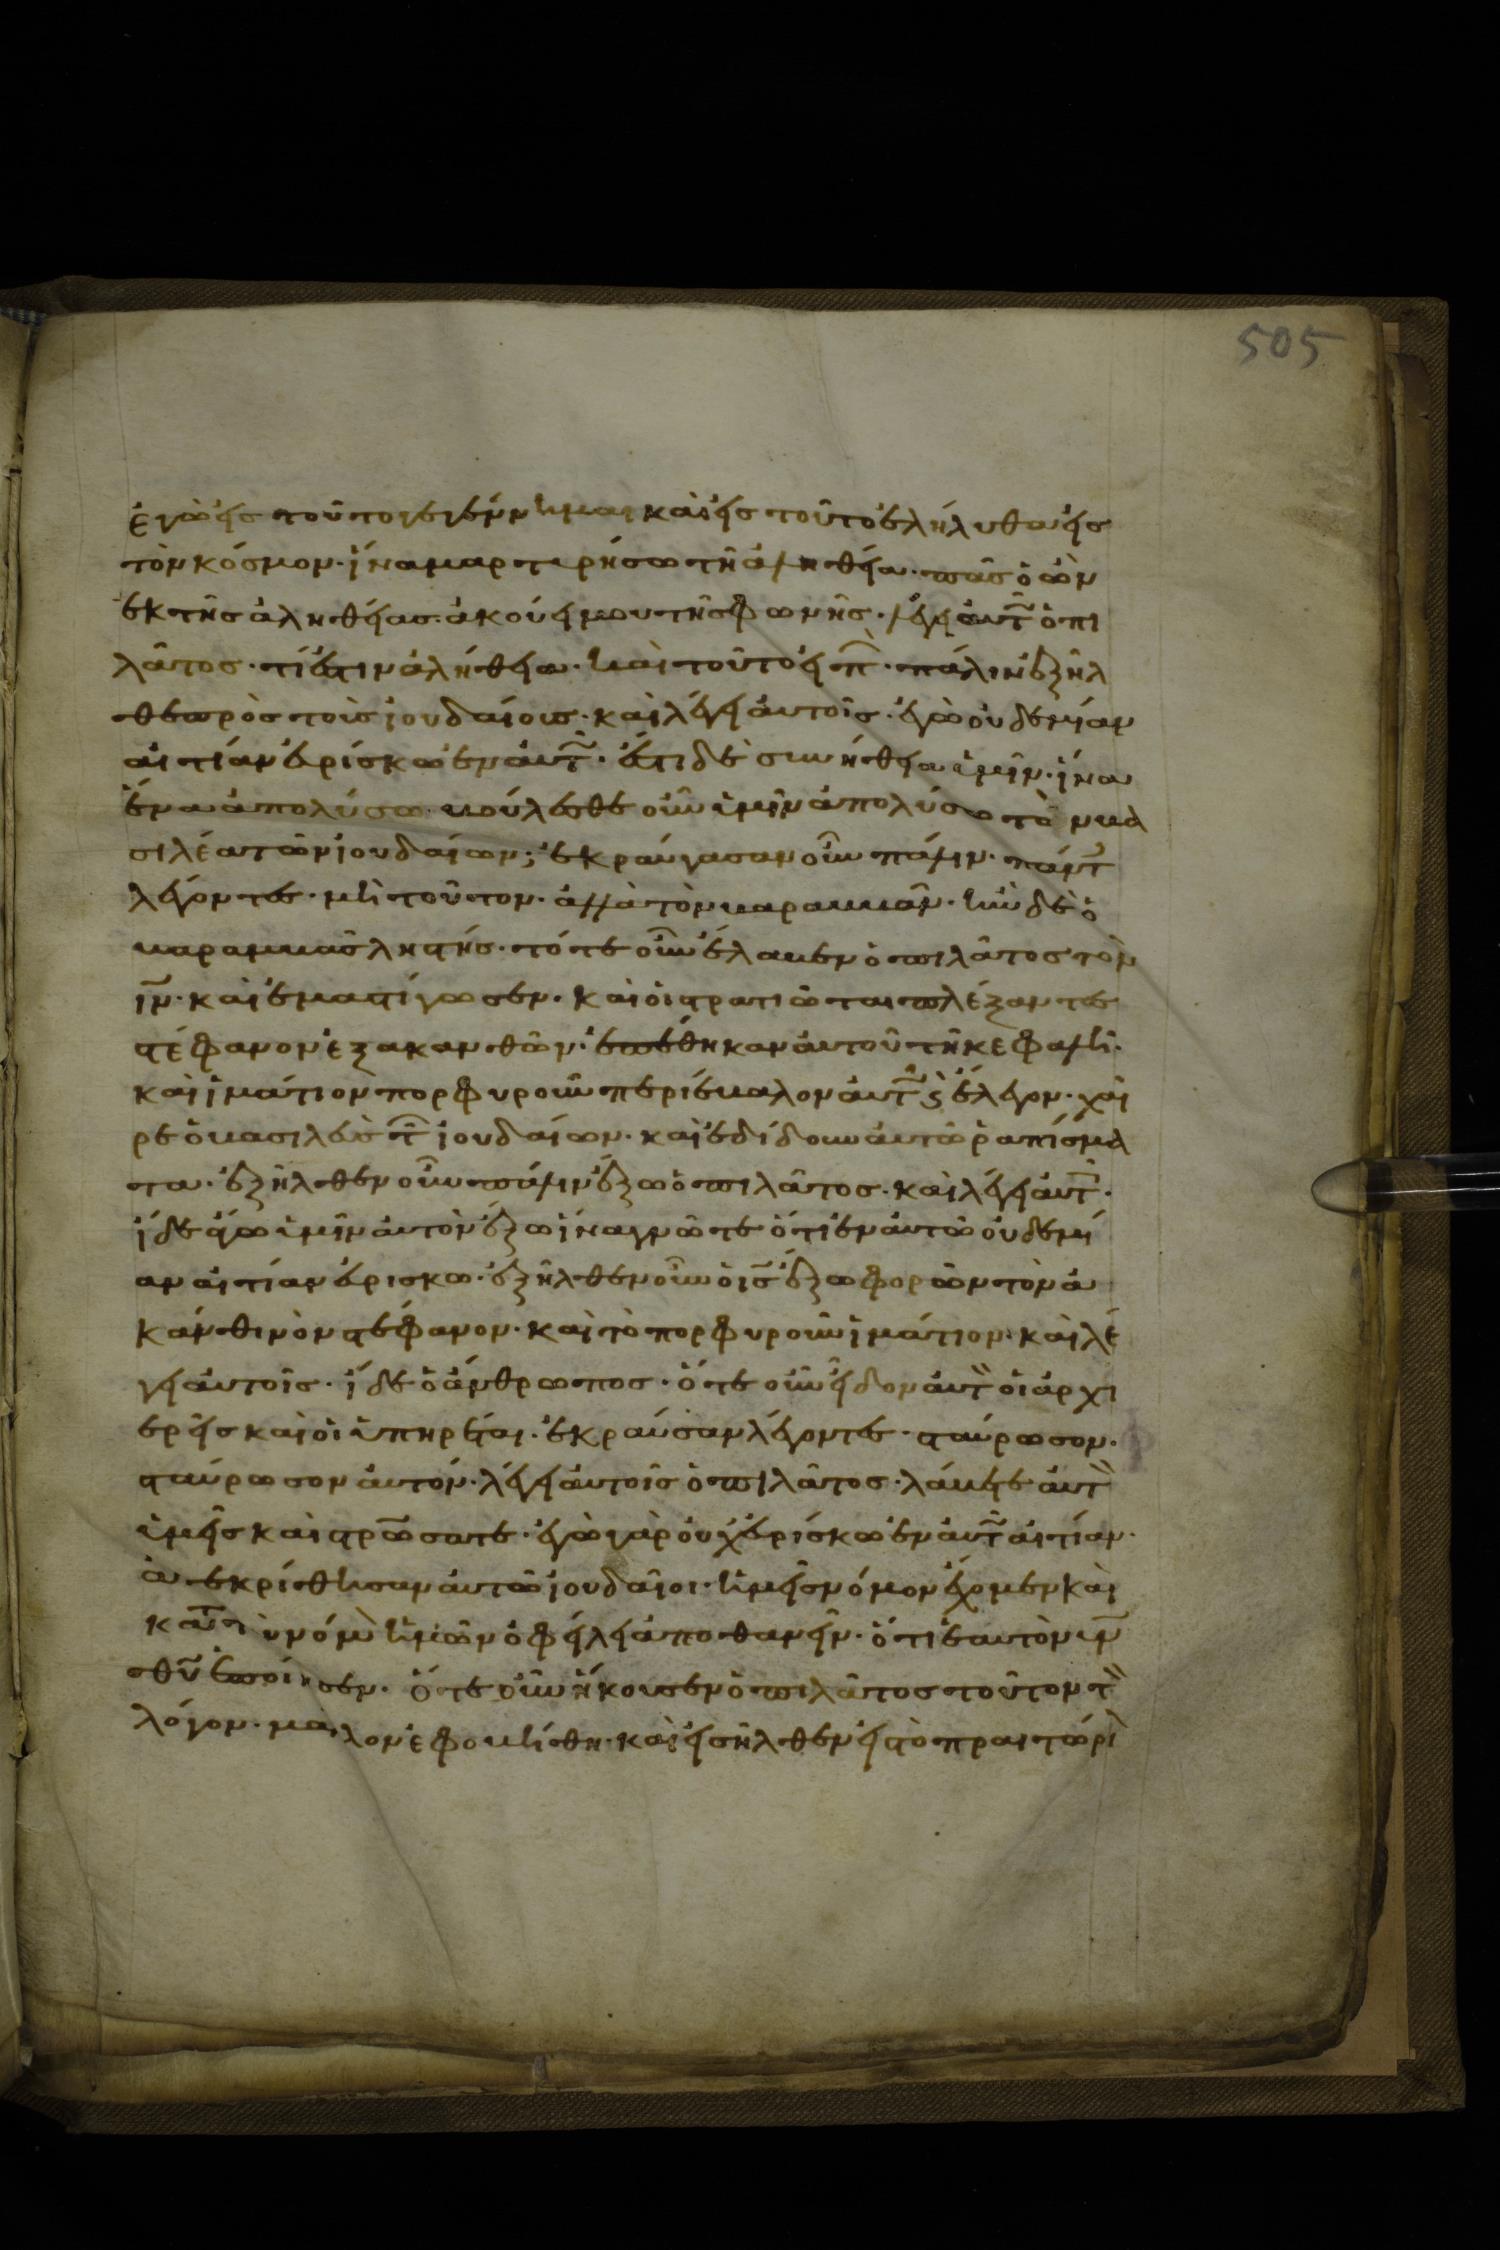 505
ἐγὼ εἰς τοῦτο γεγέννημαι καὶ εἰς τοῦτο ἐλήλυθα εἰς
τὸν κόσμον· ἵνα μαρτυρήσω τῆ ἀληθεία· πᾶς ὁ ὢν
ἐκ τῆς ἀληθείας ἀκούει μου τῆς φωνῆς· λέγει αυτῶ ὁ πι
λᾶτος· τί ἐστιν ἀλήθεια· καὶ τοῦτο εἰπὼ· πάλιν ἐξῆλ
θε πρὸς τοὺς ἰουδαίους· καὶ λέγει αὐτοῖς· ἐγὼ οὐδεμίαν
αἰτίαν εὑρίσκω ἐν αὐτῶ· ἔστι δὲ συνήθεια ὑμῖν· ἵνα
ἕνα ἀπολύσω· βούλεσθε οὖν ὑμῖν ἀπολύσω τὸν βα
σιλέα τῶν ἰουδαίων; ἐκραύγασαν οὖν πάλιν· πάντ
λέγοντες· μὴ τοῦτον· ἀλλὰ τὸν βαραββᾶν· ἦν δὲ ὁ
βαραββᾶς ληστής· τότε οὖν ἔλαβεν ὁ πιλᾶτος τὸν
ιν· καὶ ἐμαστίγωσεν· καὶ οἱ στρατιῶται πλέξαντες
στέφανον ἐξ ακανθῶν· ἐπέθηκαν αὐτοῦ τῆ κεφαλῆ·
καὶ ἱμάτιον πορφυροῦν περιέβαλον αὐτ ϗ ἔλεγον· χαῖ
ρε ὁ βασιλεὺς τ ἰουδαίων· καὶ ἐδίδουν αὐτῶ ῥαπίσμα
τα· ἐξῆλθεν οὖν πάλιν ἔξω ὁ πιλᾶτος· καὶ λέγει αὐτ·
ἴδε ἄγω ὑμῖν αὐτὸν ἔξω ἵνα γνῶτε ὅτι ἐν αὐτῶ οὐδεμί
αν αἰτίαν εὑρισκω· ἐξῆλθεν οὖν ὁ ις ἔξω φορῶν τὸν ἀ
κάνθινὸν στέφανον· καὶ τὸ πορφυροῦν ἱμάτιον· καὶ λέ
γει αὐτοῖς· ἴδε ὁ ἄνθρωπος· ὅτε οὖν εἶδον αὐτ οἱ ἀρχι
ερεῖς καὶ οἱ ὑπηρέται· ἐκραύγασαν λέγοντες· σταύρωσον·
σταύρωσον αὐτόν· λέγει αὐτοῖς ὁ πιλᾶτος· λάβετε αὐτ
ὑμεῖς καὶ στρώσατε· ἐγὼ γὰρ οὐχ εὑρίσκω ἐν αὐτ αἰτίαν·
ἀπεκρίθησαν αὐτῶ ἰουδαῖοι· ἡμεῖς νόμον ἔχομεν καὶ
κατ τὸν νόμὸ ἡμῶν ὀφείλει ἀποθανεῖν· ὅτι ἑαυτὸν υν
θυ ἐποίησεν· Ὅτε οὖν ἤκουσεν ὁ πιλᾶτος τοῦτον τ
λόγον· μαλλον ἐφοβήθη· καὶ εἰσῆλθεν εἰς τὸ πραιτώρι